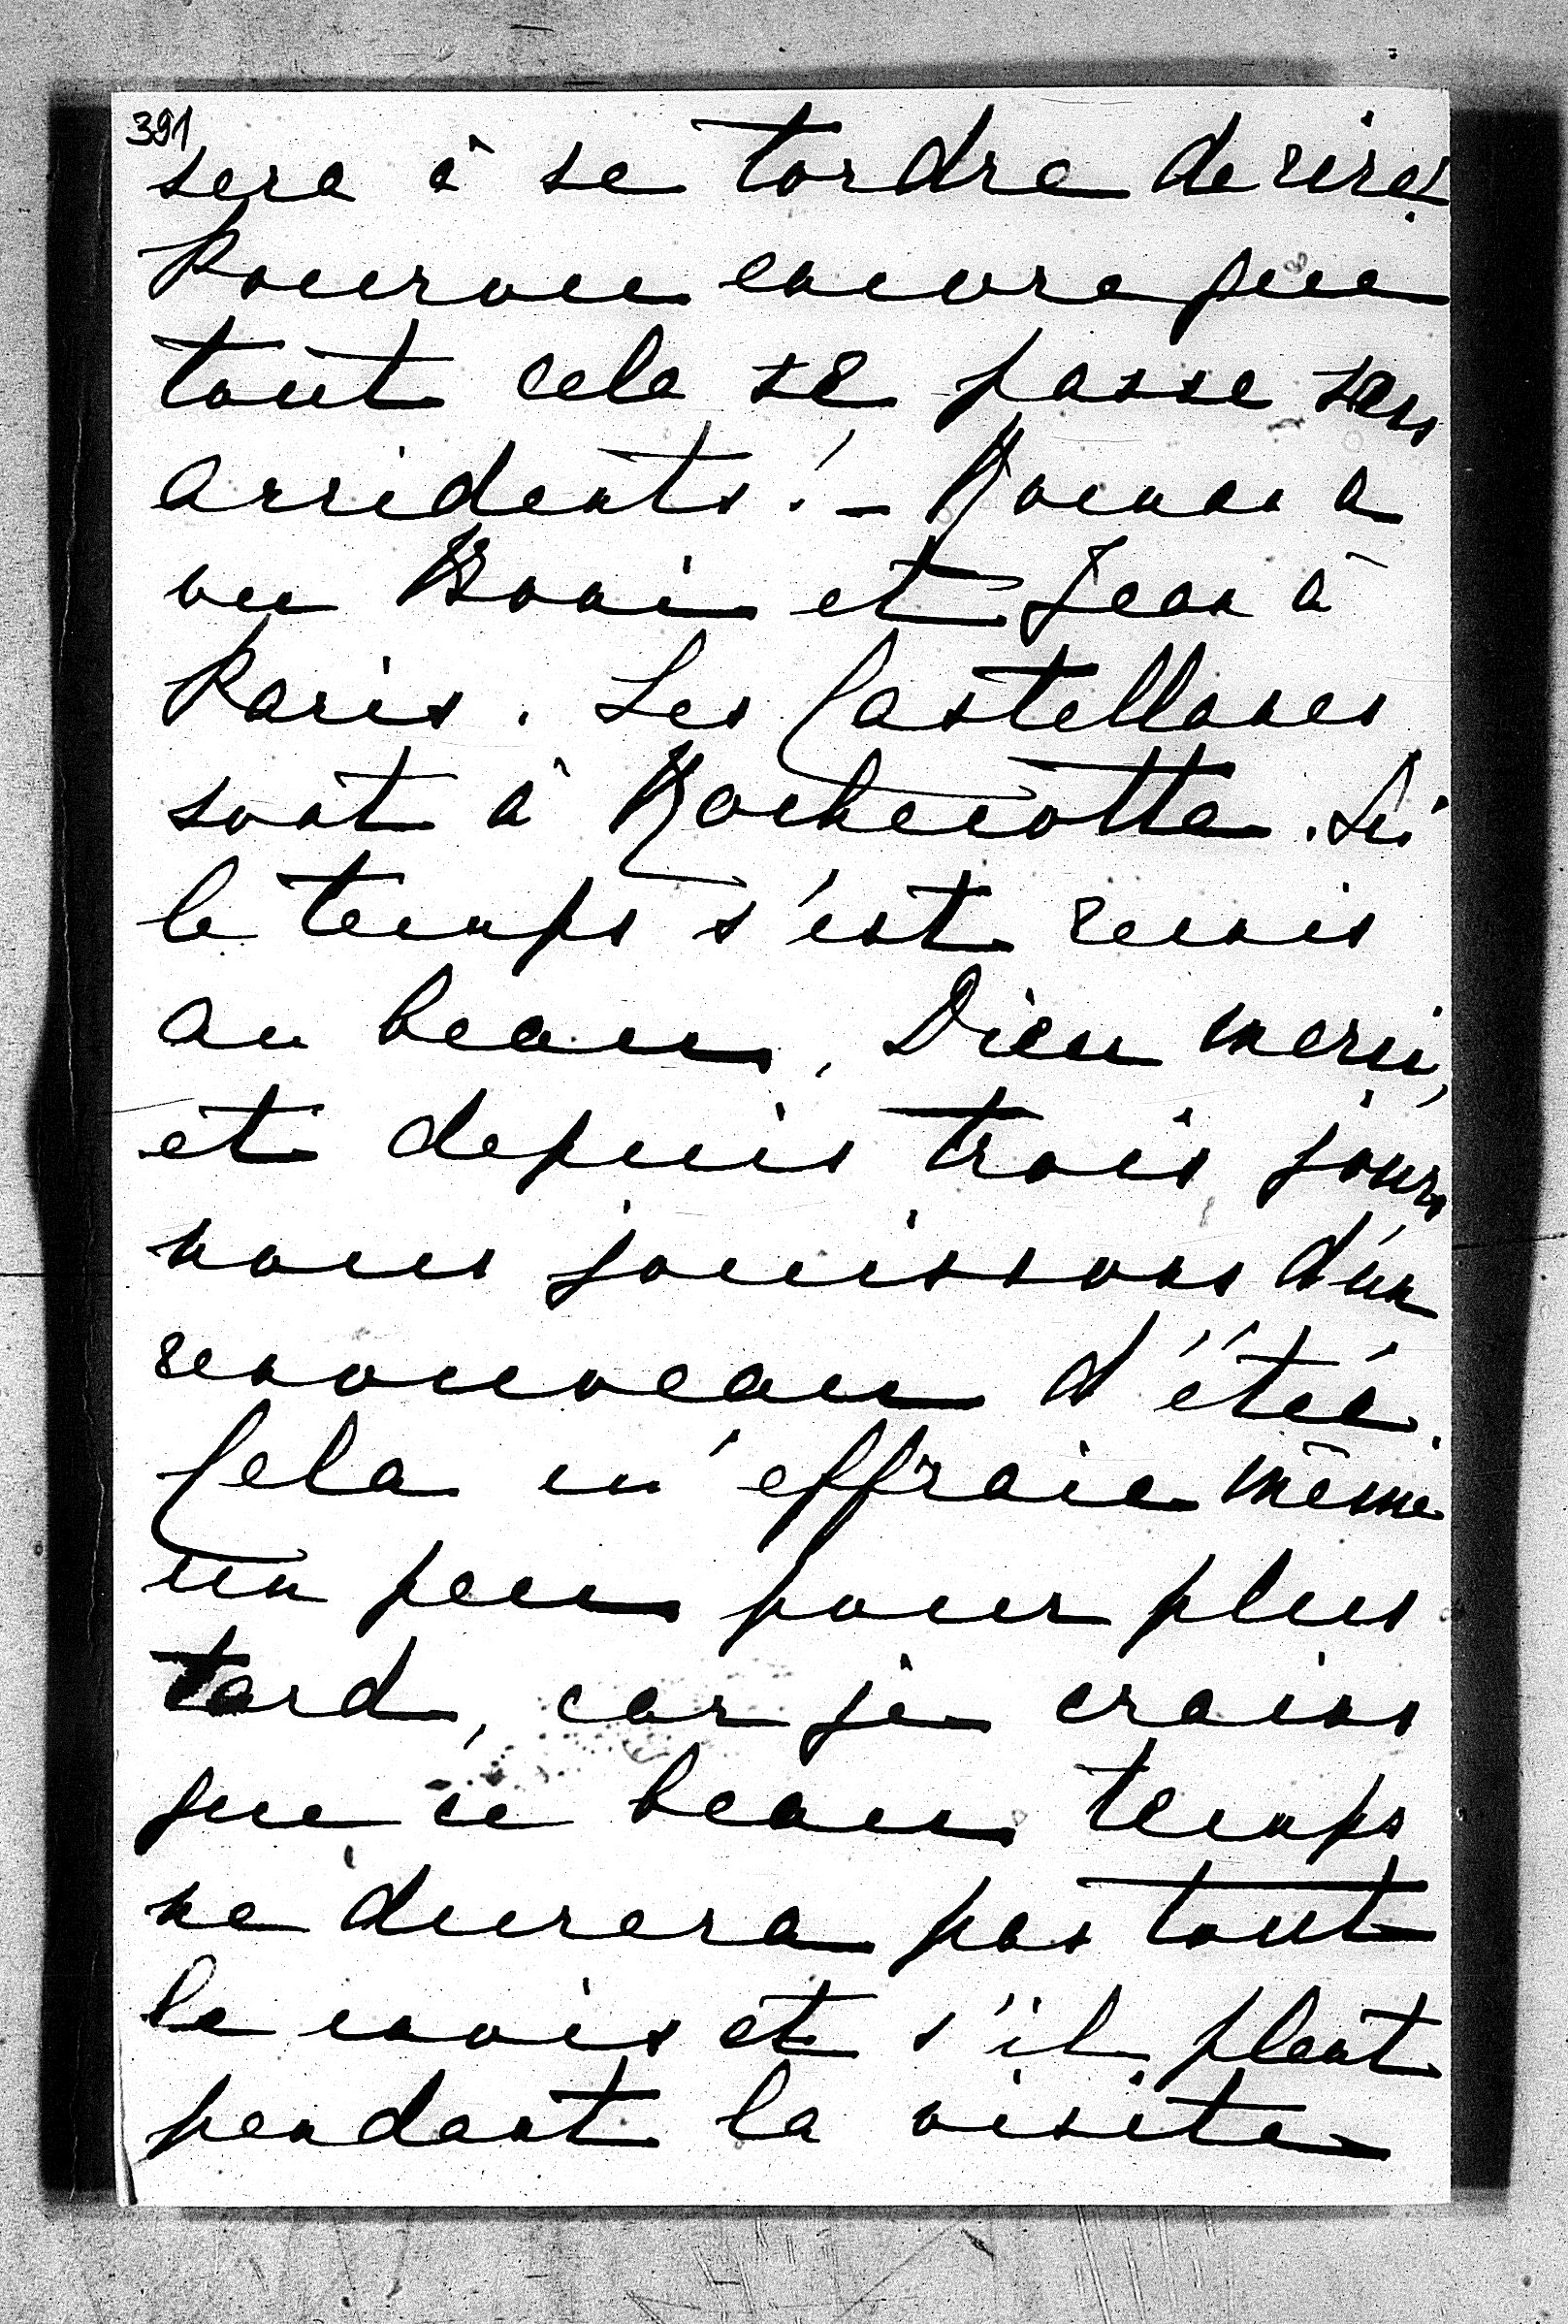 391
sera à se tordre de rire!
Pourvu encore que
tout cela se passe sans
accidents! – a
vu Boni et Jean à
Paris. Les Castellanes
sont à Rochecotte. Ici
le temps s'est remis
au beau, Dieu merci,
et depuis trois jours
nous jouissons d'un
renouveau d'été.
Cela m'effraie même
un peu pour plus
tard, car je crains
que ce beau temps
ne durera pas tout
le mois et s'il pleut
pendant la visite